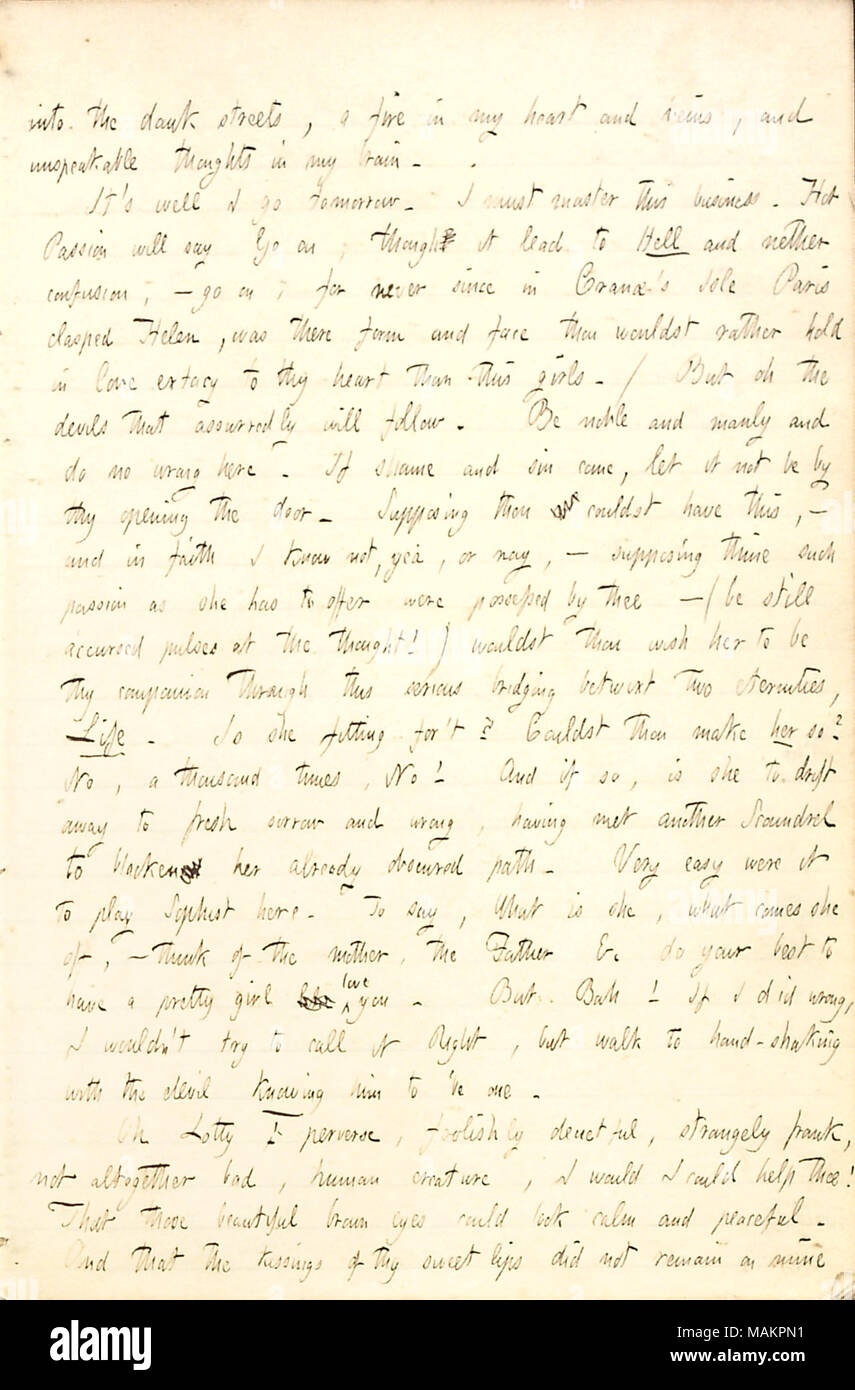 into the dank streets, a fire in my heart and veins, and
unspeakable thoughts in my brain -
It's well I go tomorrow - I must master this business. Hot
Passion will say Go on, though it lead to Hell and nether
confusion, - go on; for never since in Cranæ's Isle Paris
clasped Helen, was there form and face thou wouldst rather hold
in love extacy to thy heart than this girls - / But oh the
devils that assurredly will follow. Be noble and manly and
do no wrong here. If shame and sin come, let it not be by
thy opening the door - Supposing thou couldst have this, -
and in faith I know not, yea, or nay, - supposing thine such
passion as she has to offer were possessed by thee - (be still
accursed pulses at the thought!) wouldst thou wish her to be
thy companion through this serious bridging betwixt two eternities,
Life. Is she fitting for't? Couldst thou make her so?
No, a thousand times, No! And if so, is she to drift
away to fresh sorrow and wrong, having met another Scoundrel
to blacken her already obscured path - Very easy were it
to play Sophist here - To say, What is she, what comes she
of, - think of the mother, the Father &c do your best to
have a pretty girl love you - But Bah! If I did wrong,
I wouldn't try to call it Right, but walk to hand-shaking
with the devil knowing him to be one.
Oh Lotty! perverse, foolishly deceitful, strangely frank,
not altogether bad, human creature, I would I could help thee!
That those beautiful brown eyes could look calm and peaceful -
And that the kissings of thy sweet lips did not remain on mine
alamy
Image ID: MAKPN1
www.alamy.com